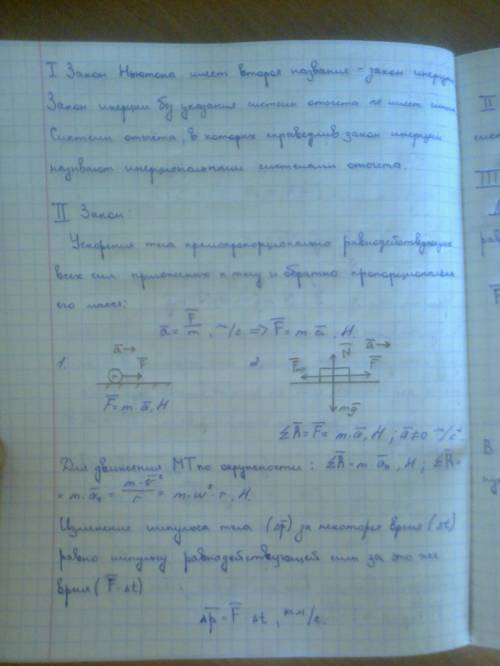 I Закон Ньютона имеет второе название - закон инерции
Закон инерции без указания систем отсчета не имеет смысл
Системы отсчёта, в которых справедлив закон инерции
называют инерциональными системами отсчёта.
II Закон:
Ускорения тела прямопропорционально равнодействующие
всех сил приложенных к телу и обратно пропорциональна
его массе:
a̅ = F̅/m, м/с => F̅ = m·a̅, Н.
1. a̅→ F̅
2. F̅ N̅ a̅→ F̅
mg̅
F̅ = m·a̅, Н
ΣR̅ = F̅ = m·a̅, Н ; a̅≠0 м/с²
Для движения МТ по окружности: ΣR̅ = m·a̅ₙ, Н ; ΣR̅ =
= m·a̅ₙ = m·v̅²/r = m·ω²·r, Н.
Изменение импульса тела (Δp̅) за некоторое время (Δt)
равно импульсу равнодействующей силы за это же
время (F̅·Δt)
Δp̅ = F̅ Δt, кг·м/с.
II
сист
III
рав
F̅
В
пу